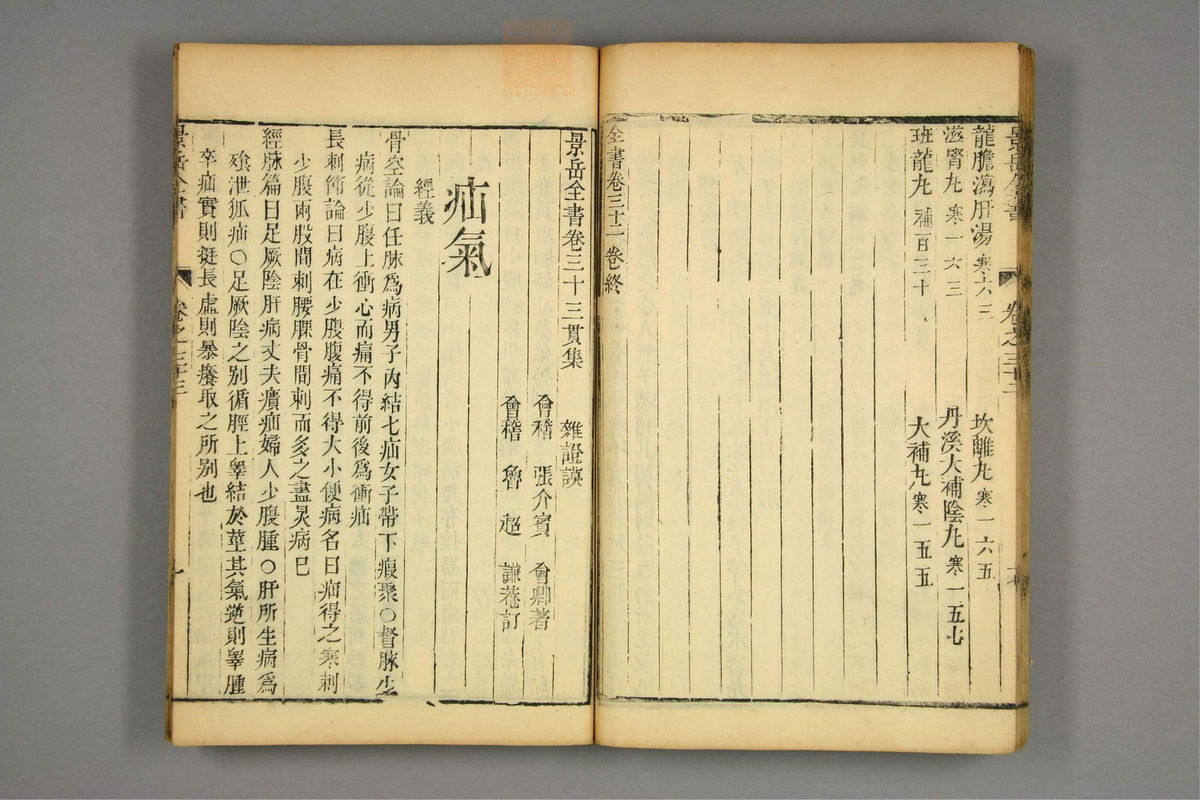 景岳全書
卷之三十二
龍膽瀉肝湯 寒六三
坎離丸 寒一六五
滋腎丸 寒一六三
丹溪大補陰丸 寒一五七
班龍丸 補百三十
大補丸 寒一五五
全書卷三十二 卷終
景岳全書卷三十三貫集 雜證謨
會稽 張介賓 會卿著
會稽 魯 超 謙菴訂
疝氣
經義
骨空論曰任脉爲病男子內結七疝女子帶下瘕聚○督脉生
病從少腹上衝心而痛不得前後爲衝疝
長刺節論曰病在少腹腹痛不得大小便病名曰疝得之寒刺
少腹兩股間刺腰髁骨間刺而多之盡炅病已
經脉篇曰足厥陰肝病丈夫㿉疝婦人少腹腫○肝所生病爲
飱泄狐疝○足厥陰之别循脛上睾結於莖其氣逆則睾腫
卒疝實則挺長虛則暴癢取之所别也
景岳全書
卷之三十三